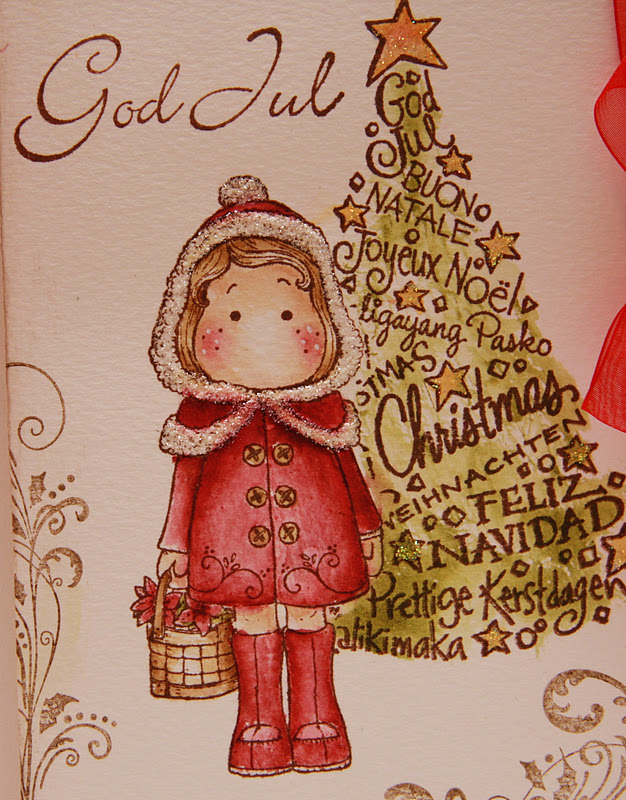 God Jul
God
Jul
BUON
NATALE
Joyeux Noël
ligayang Pasko
STMAS
Christmas
WEIHNACHTEN
FELIZ
NAVIDAD
Prettige Kerstdagen
alikimaka